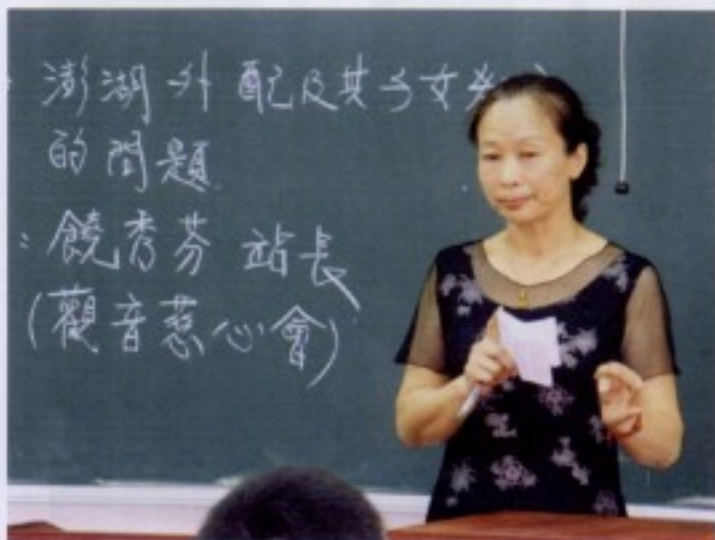 澎湖外配及其子女
的問題
:饒秀芬 站長
(觀音慈心會)